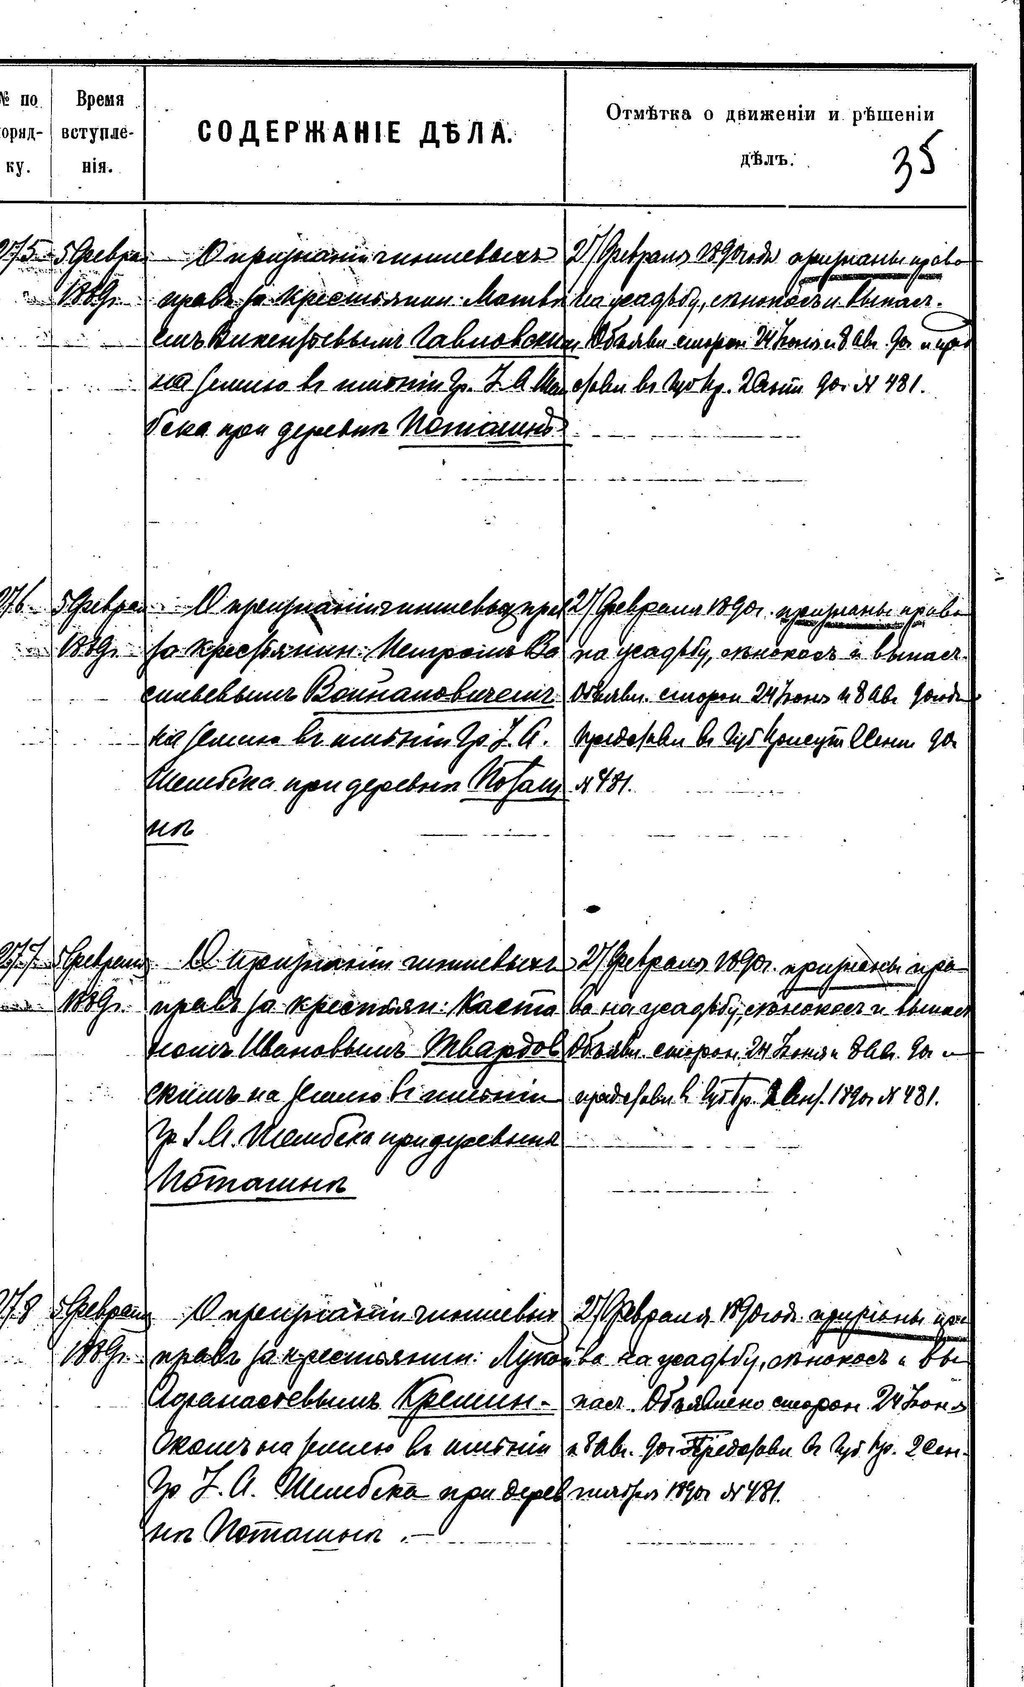 № по
поряд-
ку.
Время
вступле-
нія.
СОДЕРЖАНІЕ ДѢЛА.
Отмѣтка о движеніи и рѣшеніи
дѣлъ.
35
275
5 Февра
1889г.
О признаніи чиншевыхъ
правъ за крестьянин. Матве
емъ Викентьевымъ Гавловским
на землю въ имѣніи Гр. І. А. Шем
бека при деревнѣ Поташнѣ
27 Февраля 1890 года признаны право
на усадьбу, сѣнокосъ и выпасъ.
Объявл. сторон. 24 Іюня и 8 Авг. 90г. и пред
ставл. въ Губ. Пр. 2 Сент. 90г. № 481.
276
5 Февра
1889г.
О признаніи чиншевых прав
за крестьянин. Петромъ Ва
сильевымъ Войнаповичемъ
на землю въ имѣніи Гр. І. А.
Шембека при деревнѣ Поташ
нѣ
27 Февраля 1890г. признаны право
на усадьбу, сѣнокосъ и выпасъ.
Объявл. сторон. 24 Іюня и 8 Авг. 90 года
Представл. въ Губ. Присут. 2 Сент. 90г.
№ 481.
277
5 Февраля
1889г.
О признаніи чиншевыхъ
правъ за крестьян. Каета
номъ Ивановымъ Твардов
скимъ на землю въ имѣніи
Гр. І. А. Шембека при деревнѣ
Поташнѣ
27 Февраля 1890г. признаны пра
во на усадьбу, сѣнокосъ и выпасъ
Объявл. сторон. 24 Іюня и 8 Авг. 90г. и
представл. в Губ. Пр. 2 Сент. 1890г. № 481.
278
5 Февраля
1889г.
О признаніи чиншевых
правъ за крестьянин. Лукой
Афанасьевымъ Кремин-
скимъ на землю въ имѣніи
Гр. І. А. Шембека при дерев
нѣ Поташнѣ.
27 Февраля 1890 год. признаны пра
во на усадьбу, сѣнокосъ и вы
пасъ. Объявлено сторон. 24 Іюня
и 8 Авг. 90г. Представл. въ Губ. Пр. 2 Сен-
тября 1890г. № 481.